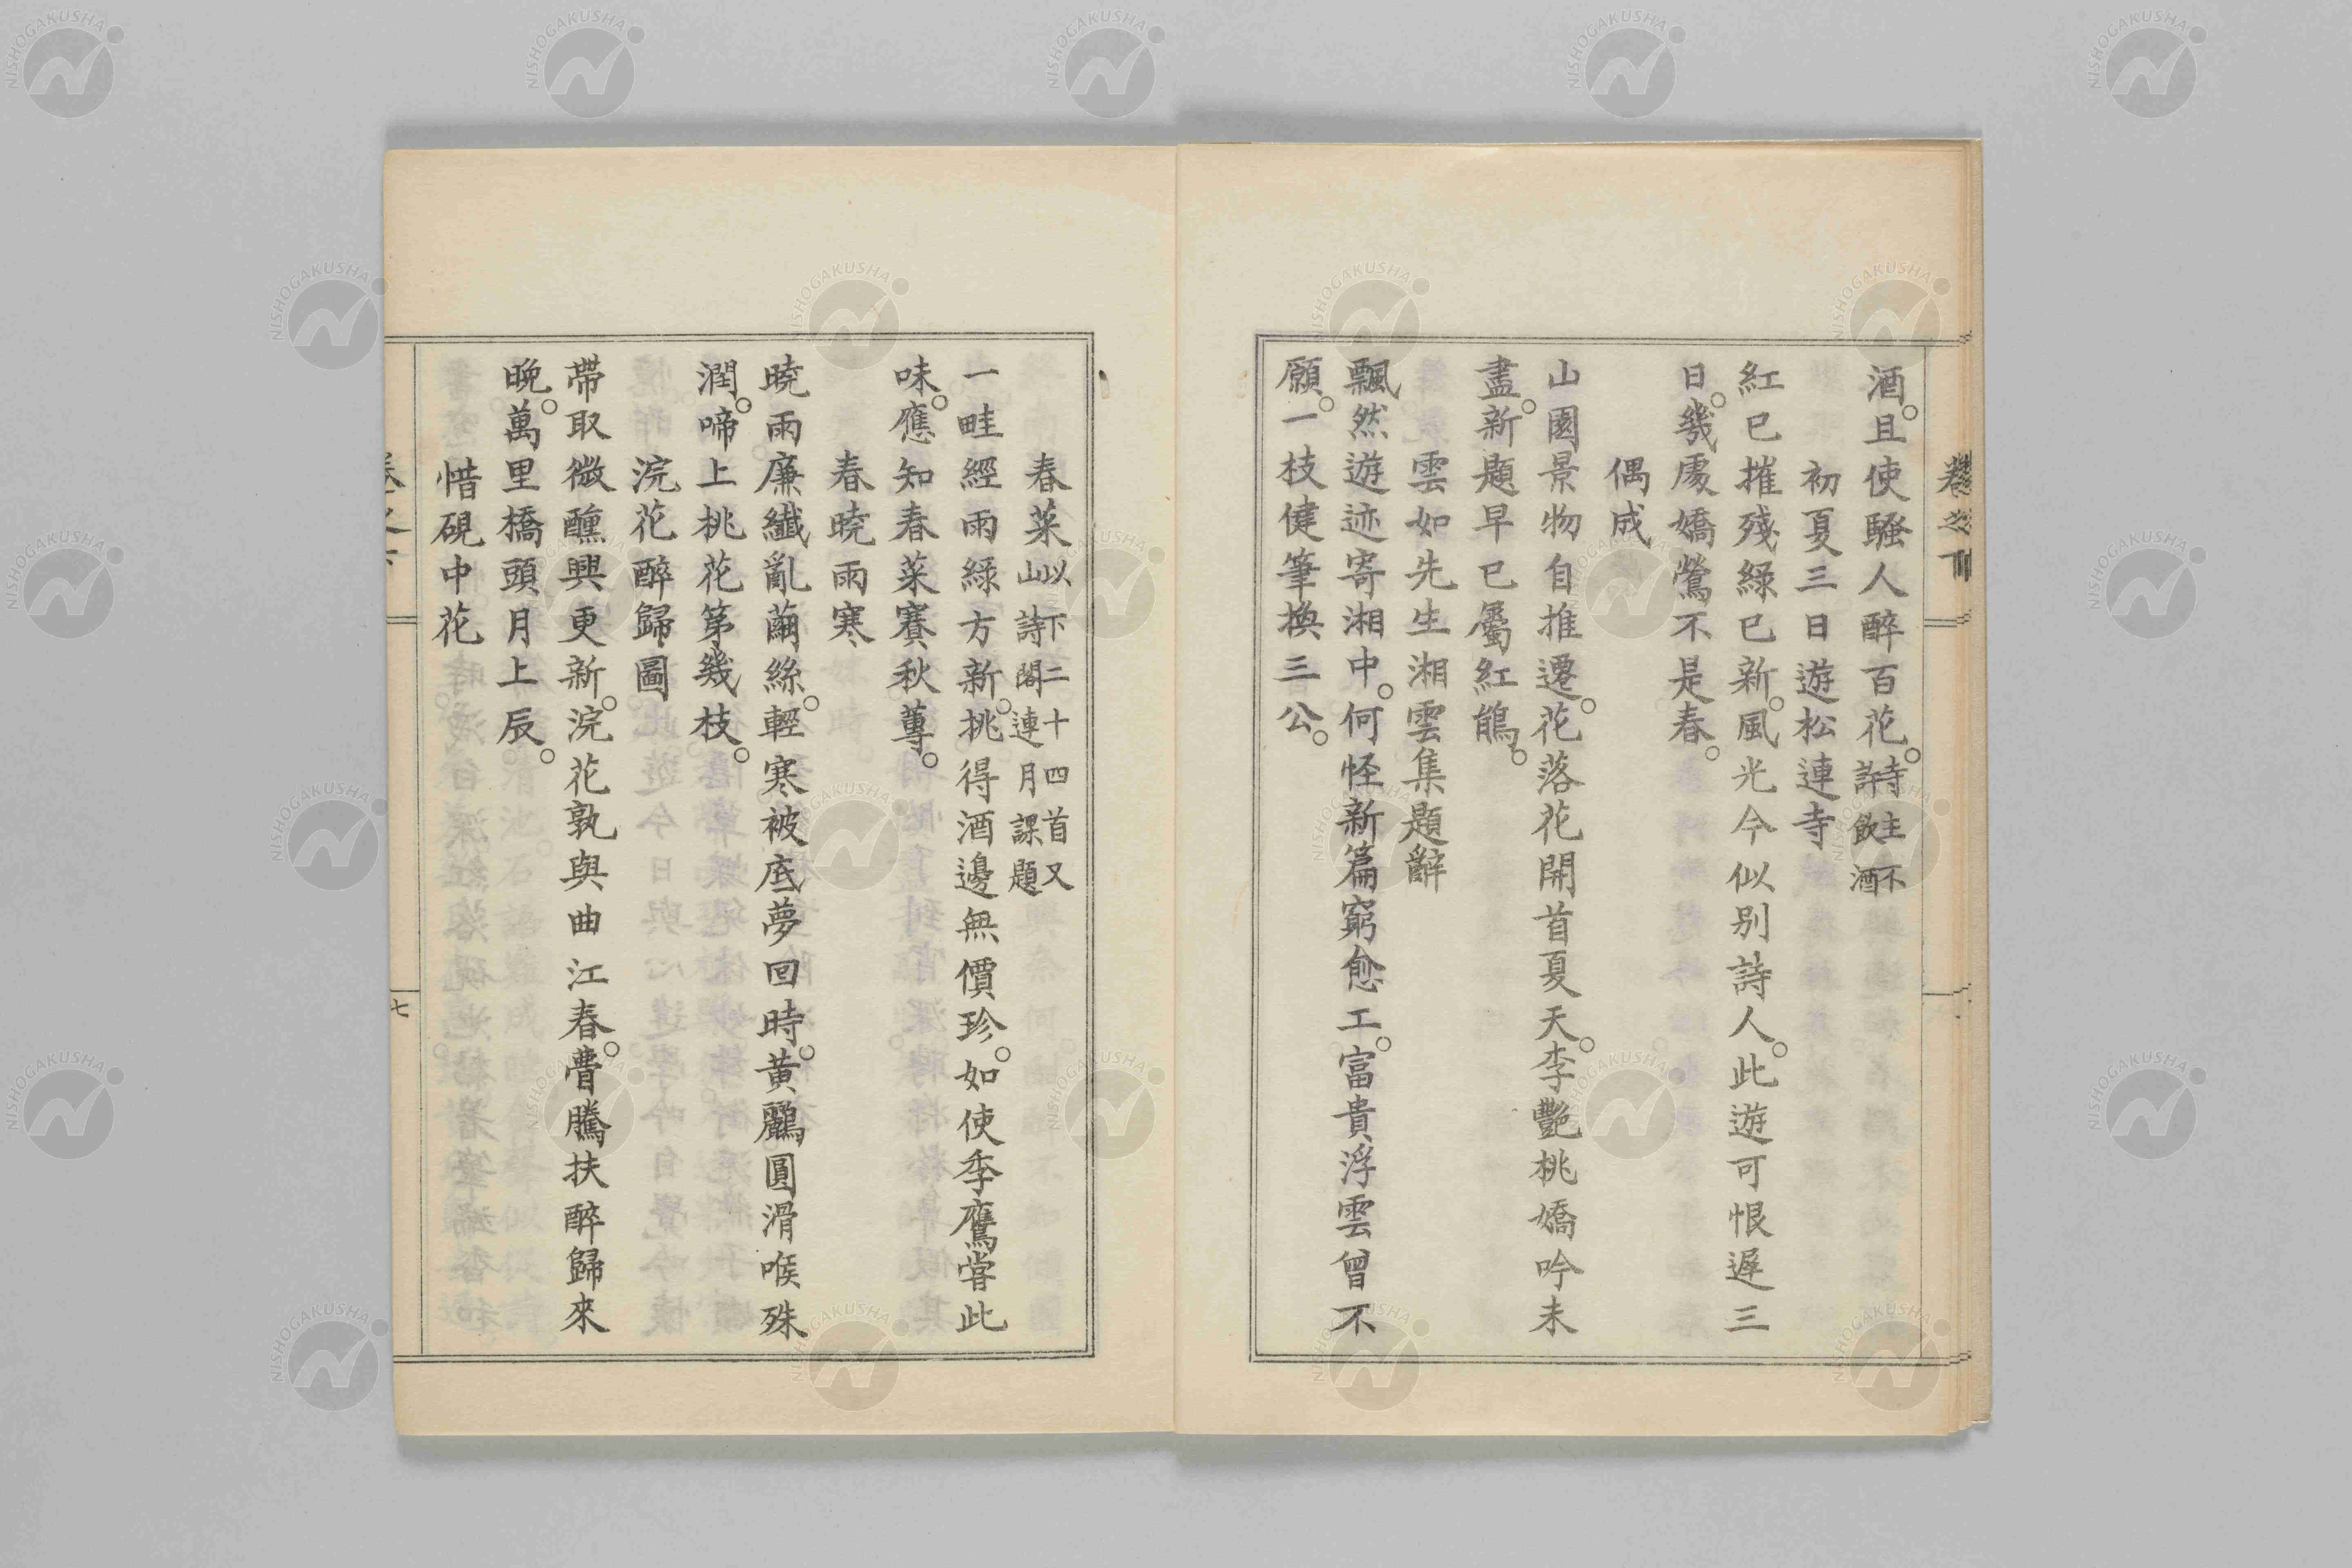 卷之下
酒。且使騷人醉百花。寺主不許飲酒
初夏三日遊松連寺
紅已摧殘綠已新。風光今似別詩人。此遊可恨遲三
日。幾處嬌鶯不是春。
偶成
山園景物自推遷。花落花開首夏天。李艷桃嬌吟未
盡。新題早已屬紅鵑。
雲如先生湘雲集題辭
飄然遊迹寄湘中。何怪新篇窮愈工。富貴浮雲曾不
願。一枝健筆換三公。
春菜以下二十四首又山詩閣連月課題
一畦經雨綠方新。挑得酒邊無價珍。如使季鷹嘗此
味。應知春菜賽秋蓴。
春曉雨寒
曉雨廉纖亂繭絲。輕寒被底夢回時。黃鸝圓滑喉殊
潤。啼上桃花第幾枝。
浣花醉歸圖
帶取微醺興更新。浣花孰與曲江春。瞢騰扶醉歸來
晚。萬里橋頭月上辰。
惜硯中花
七
NISHOGAKUSHA